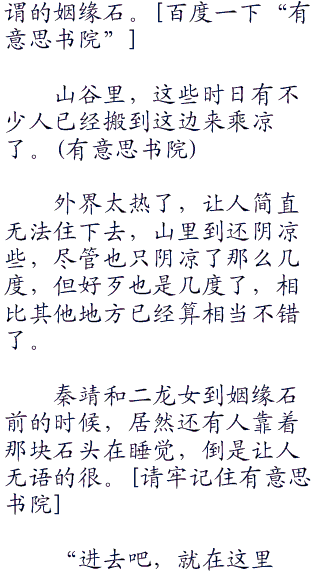 谓的姻缘石。[百度一下“有
意思书院”]
山谷里，这些时日有不
少人已经搬到这边来乘凉
了。(有意思书院)
外界太热了，让人简直
无法住下去，山里到还阴凉
些，尽管也只阴凉了那么几
度，但好歹也是几度了，相
比其他地方已经算相当不错
了。
秦靖和二龙女到姻缘石
前的时候，居然还有人靠着
那块石头在睡觉，倒是让人
无语的很。[请牢记住有意思
书院]
“进去吧，就在这里